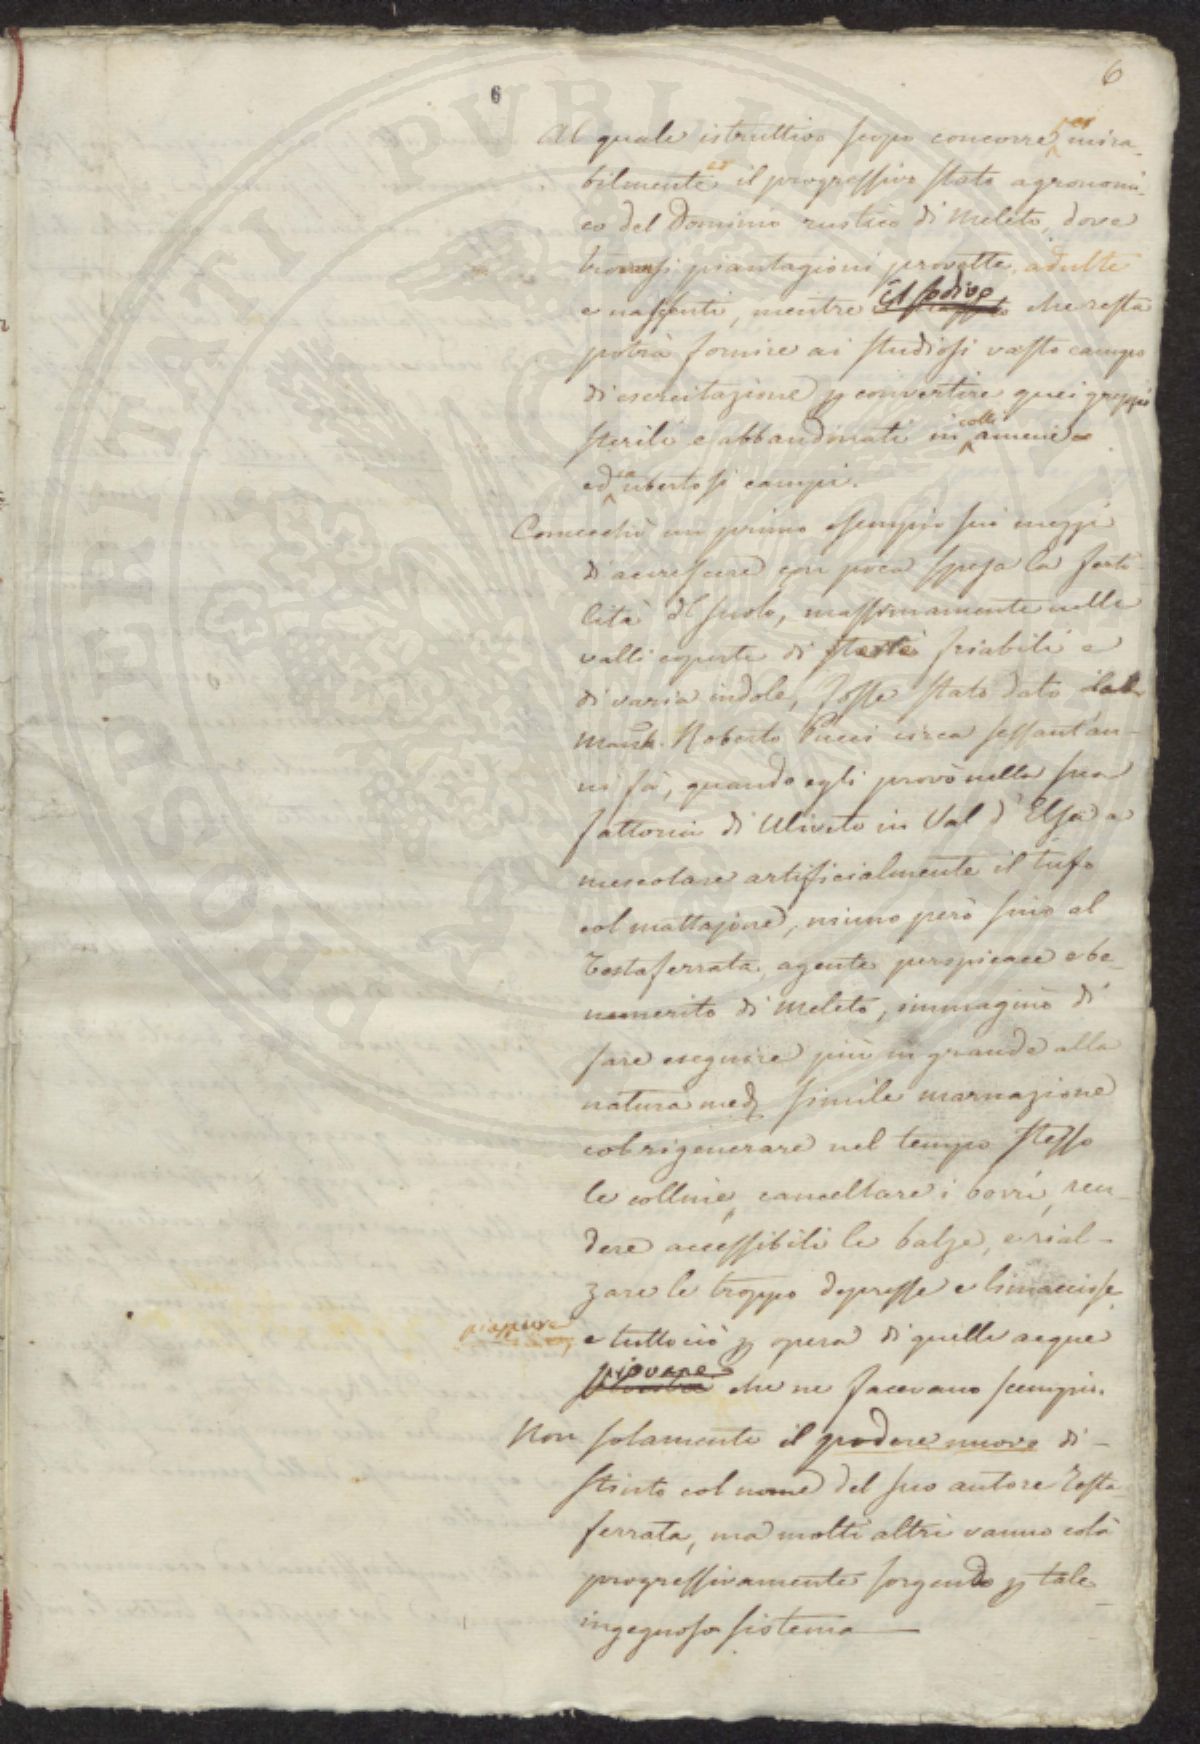 6
6
Al quale istruttivo scopo concorre per mira-
bilmente il progressivo stato agronomi-
co del Dominio rustico di Meleto, dove
trovansi piantagioni provette, adulte
e nascenti, mentre il sodivo che resta
potrà fornire ai studiosi vasto campo
di esercitazione p convertire quei greppi
sterili e abbandonati in colli ameni e
ed in ubertosi campi.
Comecchè un primo esempio sui mezzi
di accrescere con poca spesa la ferti
lità del suolo, massimamente nelle
valli coperte di friabili e
di varia indole, fosse stato dato dal
March. Roberto Pucci circa sessant'an-
ni fà, quando egli provò nella sua
fattoria di Uliveto in Val d'Elsa a
mescolare artificialmente il tufo
col mattajone, niuno però sino al
Testaferrata, agente perspicace e be-
nemerito di Meleto, immaginò di
fare eseguire più in grande alla
natura med simile marnazione
col rigenerare nel tempo stesso
le colline, cancellare i borri, ren-
dere accessibili le balze, e rial-
zare le troppo depresse e limacciose
e tuttociò p opera di quelle acque
piovane che ne facevano scempio.
Non solamente il podere nuovo di-
stinto col nome del suo autore Testa
ferrata, ma molti altri vanno colà
progressivamente sorgendo p tale
ingegnoso sistema
PROSPERITATI PVBLICAE